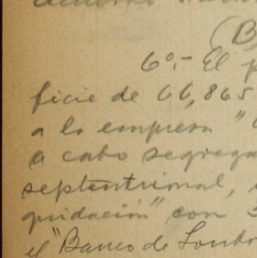 (B
6º.- El
ficie de 66,865
a la empresa "
a cabo segrega
septentrional,
quidación" con
el "Banco de Londr